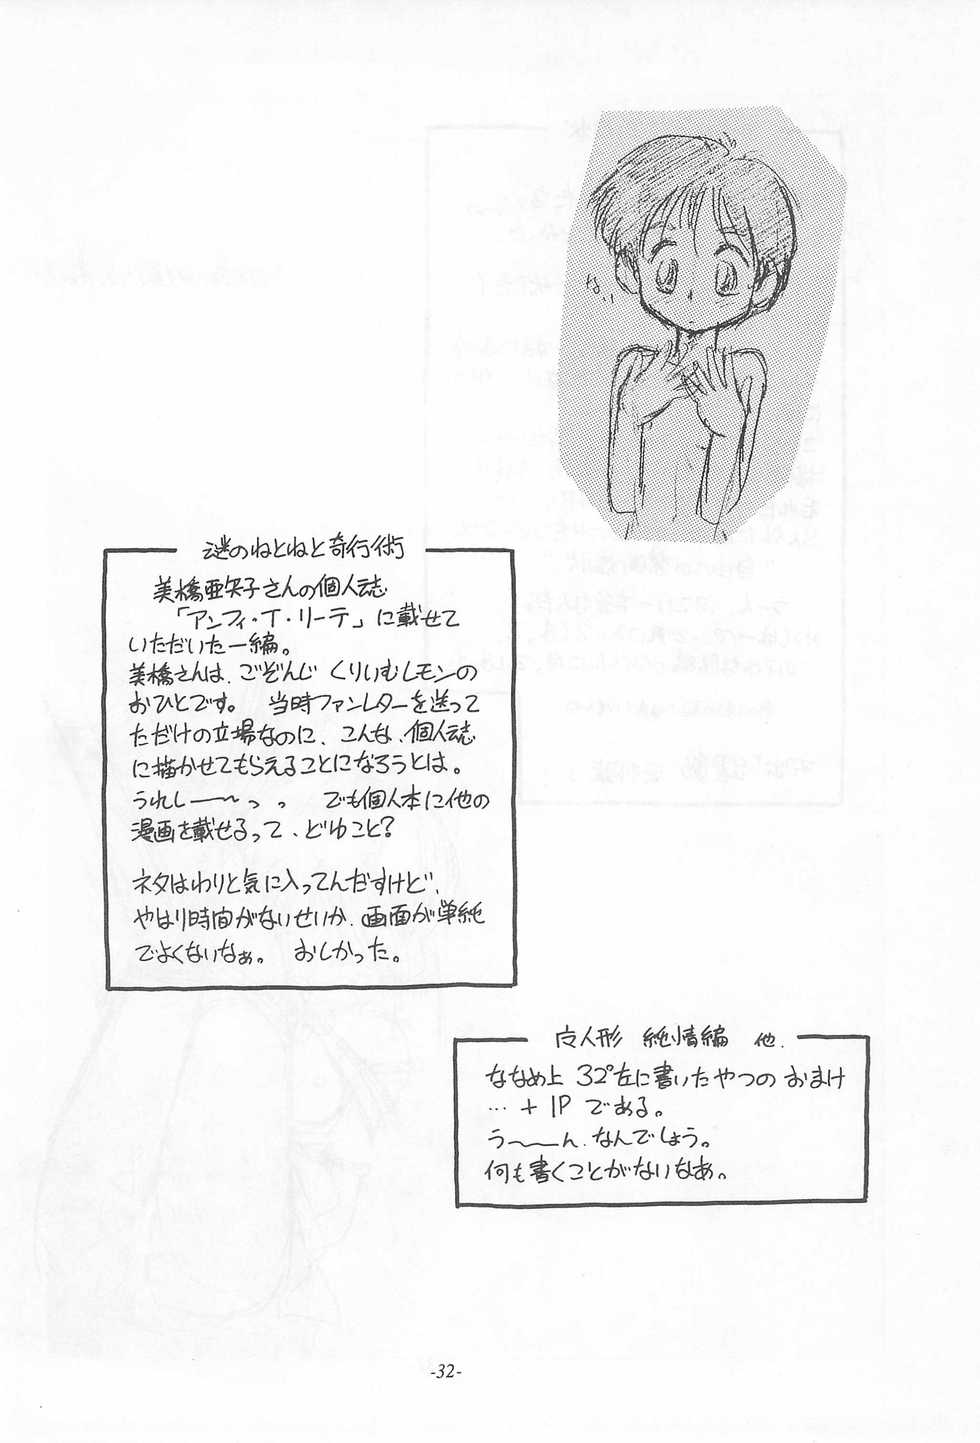 な、、
謎のねとねと奇行術
美橋亜矢子さんの個人誌
「アンフィ・T・リーテ」に載せて
いただいた一編。
美橋さんは、ごぞんじ くりいむレモンの
おひとです。 当時ファンレターを送って
ただけの立場なのに、こんな、個人誌
に描かせてもらえることになろうとは。
うれしー〜っっ でも個人本に他の
漫画を載せるって、どゆこと?
ネタはわりと気に入ってんだすけど、
やはり時間がないせいか、画面が単純
でよくないなぁ。 おしかった。
人形 純情編 他.
ななめ上 32°左に書いたやつの おまけ
… + 1P である。
う〜ーん、なんでしょう。
何も書くことがないなあ。
-32-